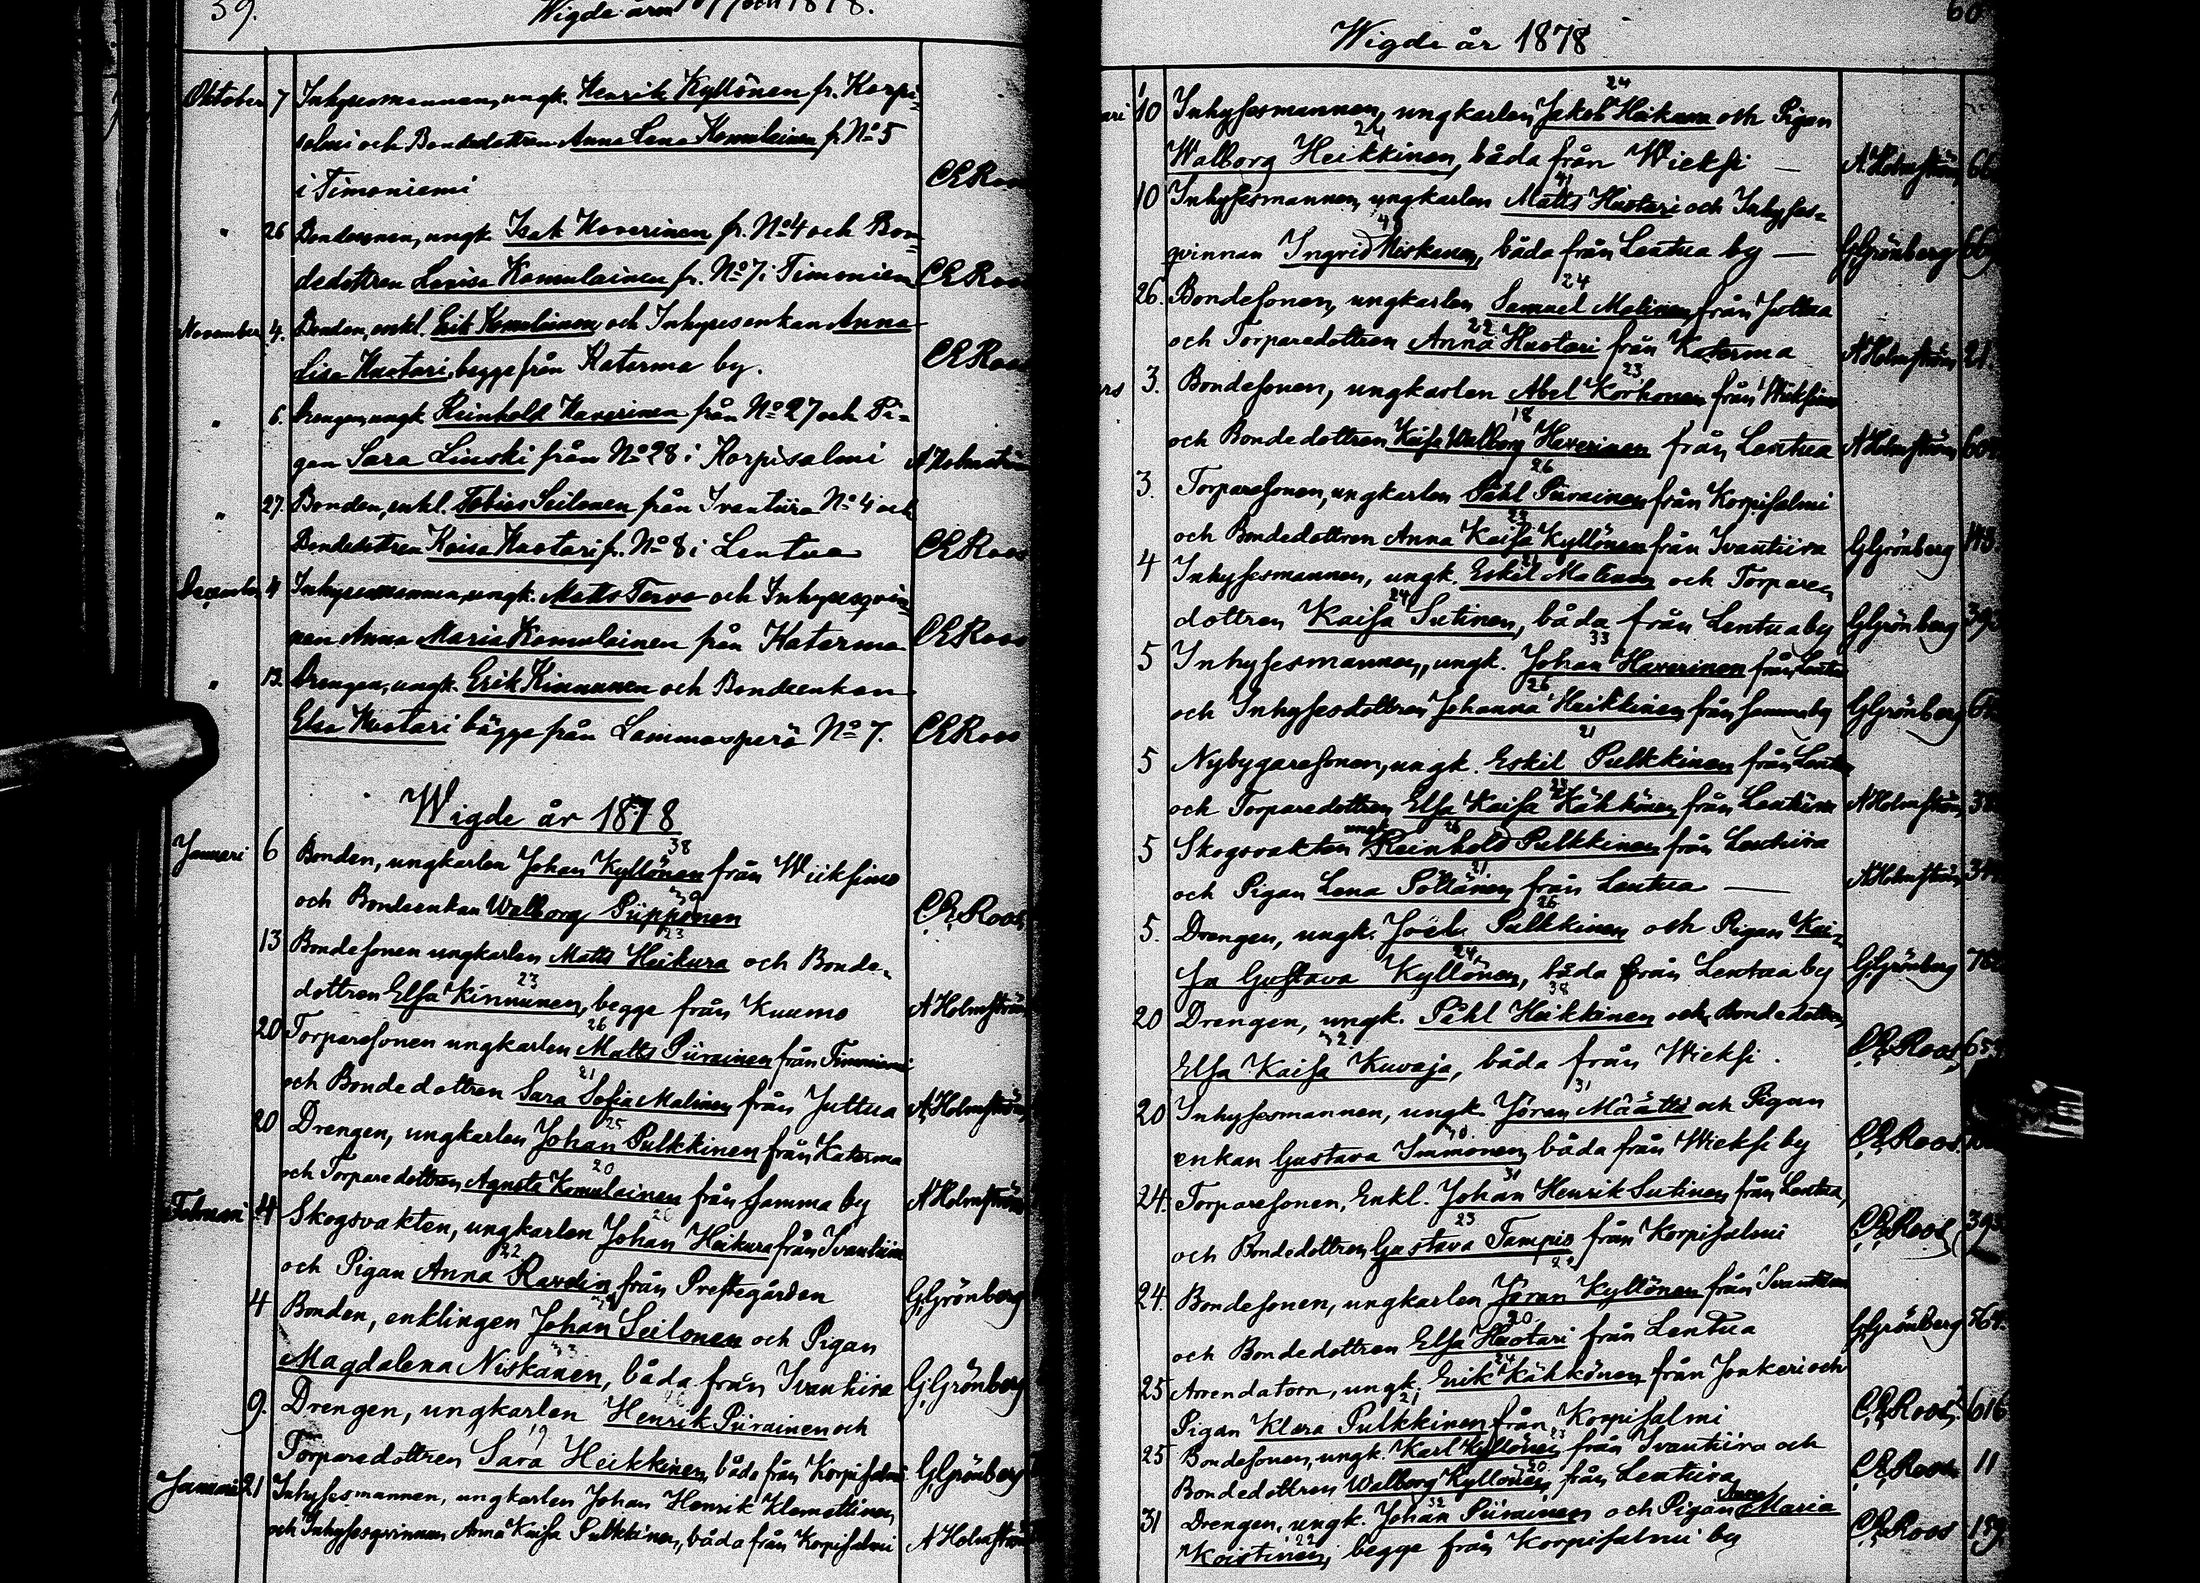 59.
Wigde åren 1877 och 1878.
Oktober 7 Inhysesmannen, ungk. Henrik Kyllönen fr. Korpi-
salmi och Bondedottren Anna Lena Komulainen fr. No 5
i Timoniemi CE Roos
" 26 Bondesonen, ungk Isak Kaverinen fr. No 4 och Bon-
dedottren Lovisa Komulainen fr. No 7 i Timoniem CE Roos
November 4. Bonden, enkl. Erik Komulainen och Inhysesenkan Anna
Lisa Huotari, begge från Katerma by. CE Roos
" 6. Drengen, ungk Reinhold Haverinen från No 27 och Pi-
gan Sara Linski från No 28 i Korpisalmi A Holmström
" 27. Bonden, enkl. Tobias Seilonen från Ivantiira No 4 och
Bondedottren Kaisa Huotari fr. No 8 i Lentua CE Roos
December 4 Inhysesmannen, ungk. Matts Tervo och Inhysesqvin-
nan Anna Maria Komulainen från Katerma CE Roos
" 13. Drengen, ungk. Erik Kinnunen och Bondeenkan
Elsa Huotari bägge från Lammasperä No 7. CE Roos
Wigde år 1878
Januari 6 Bonden, ungkarlen Johan Kyllönen 38 från Wiiksimo
och Bondeenkan Walborg Piipponen CE Roos
13 Bondesonen ungkarlen Matts Heikura 23 och Bonde-
dottren Elsa Kinnunen 23, begge från Kuumo A Holmström
20 Torparesonen ungkarlen Matts Piirainen 26 från Timoniemi
och Bondedottren Sara Sofia Malinen 21 från Juttua A Holmström
20 Drengen, ungkarlen Johan Pulkkinen 25 från Katerma
och Torparedottren Agneta Komulainen 20 från Jamma by A Holmström
Februari 4 Skogsvakten, ungkarlen Johan Heikura 26 från Ivantiira
och Pigan Anna Ravelin 22 från Prestegården G Grönberg
4 Bonden, enklingen Johan Seilonen och Pigan
Magdalena Niskanen 33, båda från Ivantiira G Grönberg
9. Drengen, ungkarlen Henrik Piirainen och
Torparedottren Sara Heikkinen 19, båda från Korpisalmi G Grönberg
Januari 21 Inhysesmannen, ungkarlen Johan Henrik Klemettinen
och Inhysesqvinnan Anna Kaisa Pulkkinen, båda från Korpisalmi A Holmström
60
Wigde år 1878
10 Inhysesmannen, ungkarlen Jakob Heikura 24 och Pigan
Walborg Heikkinen 24, båda från Wieksi — A Holmström
10 Inhysesmannen, ungkarlen Matts Huotari 41 och Inhyses-
qvinnan Ingrid Niskanen, båda från Lentua by — G Grönberg
26. Bondesonen, ungkarlen Samuel Malinen 24 från Juttua
och Torparedottren Anna Huotari 22 från Katerma A Holmström 21.
3. Bondesonen, ungkarlen Abel Korhonen 23 från Wiksimo
och Bondedottren Kaisa Walborg Haverinen 18 från Lentua A Holmström
3. Torparesonen, ungkarlen Påhl Piirainen 26 från Korpisalmi
och Bondedottren Anna Kaisa Kyllönen från Ivantiira G Grönberg 143.
4 Inhysesmannen, ungk. Eskil Malinen 21 och Torpare-
dottren Kaisa Sutinen 24, båda från Lentua by G Grönberg
5 Inhysesmannen, ungk. Johan Haverinen 33 från Lentua
och Inhysesdottren Johanna Heikkinen 26 från Jamma by G Grönberg
5 Nybygaresonen, ungk. Eskil Pulkkinen 21 från Lentua
och Torparedottren Elsa Kaisa Kähkönen från Lentiira A Holmström
5 Skogsvakten ungk Reinhold Pulkkinen från Lentiira
och Pigan Lena Pöllänen 21 från Lentua — A Holmström
5. Drengen, ungk. Joel Pulkkinen 26 och Pigan Kai-
sa Gustava Kyllönen 24, båda från Lentua by G Grönberg
20 Drengen, ungk. Påhl Heikkinen 38 och Bondedottren
Elsa Kaisa Kuvaja 32, båda från Wieksi. CE Roos
20 Inhysesmannen, ungk. Jöran Määttä 31 och Pigan
enkan Gustava Immonen 30. båda från Wieksi by CE Roos
24. Torparesonen, Enkl. Johan Henrik Sutinen 31 från Lentua,
och Bondedottren Gustava Tampio 23 från Korpisalmi CE Roos 393.
24. Bondesonen, ungkarlen Jöran Kyllönen från Ivantiira
och Bondedottren Elsa Huotari 20 från Lentua G Grönberg
25 Arrendatorn, ungk. Erik Kähkönen 24 från Jonkeri och
Pigan Klara Pulkkinen 21 från Korpisalmi CE Roos 616
25 Bondesonen, ungk. Karl Kyllönen från Ivantiira och
Bondedottren Walborg Kyllönen 20 från Lentiira CE Roos 11
31 Drengen, ungk. Johan Piirainen 32 och Pigan Anna Maria
Koistinen 22, begge från Korpisalmi by CE Roos 159.